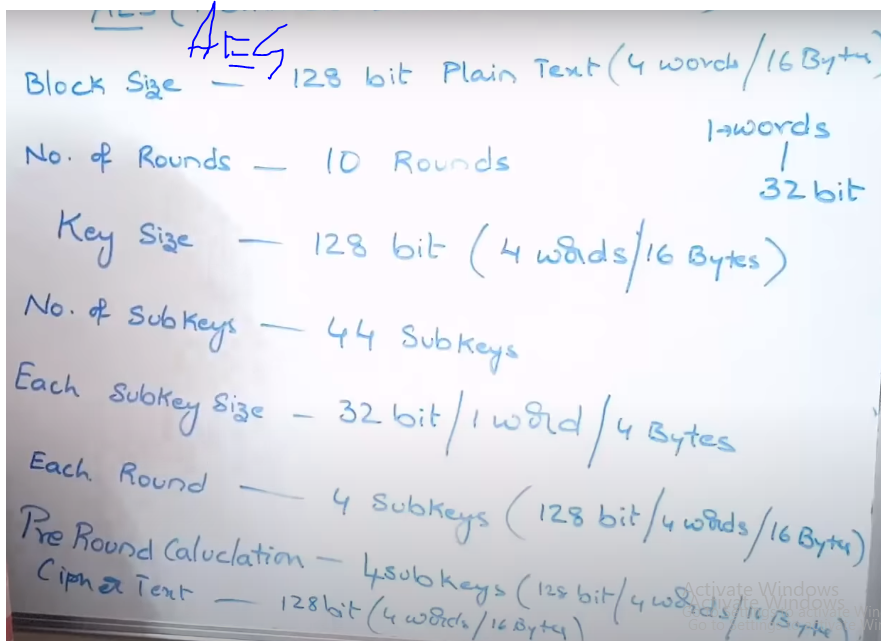 AES
Block Size — 128 bit Plain Text (4 words/16 Bytes)
1→words
32 bit
No. of Rounds — 10 Rounds
Key Size — 128 bit (4 words/16 Bytes)
No. of Subkeys — 44 Subkeys
Each Subkey Size — 32 bit/1 word/4 Bytes
Each Round — 4 Subkeys (128 bit/4 words/16 Bytes)
Pre Round Caluclation — 4 subkeys (128 bit/4 words/16 Bytes)
Cipher Text — 128 bit (4 words/16 Bytes)
Activate Windows